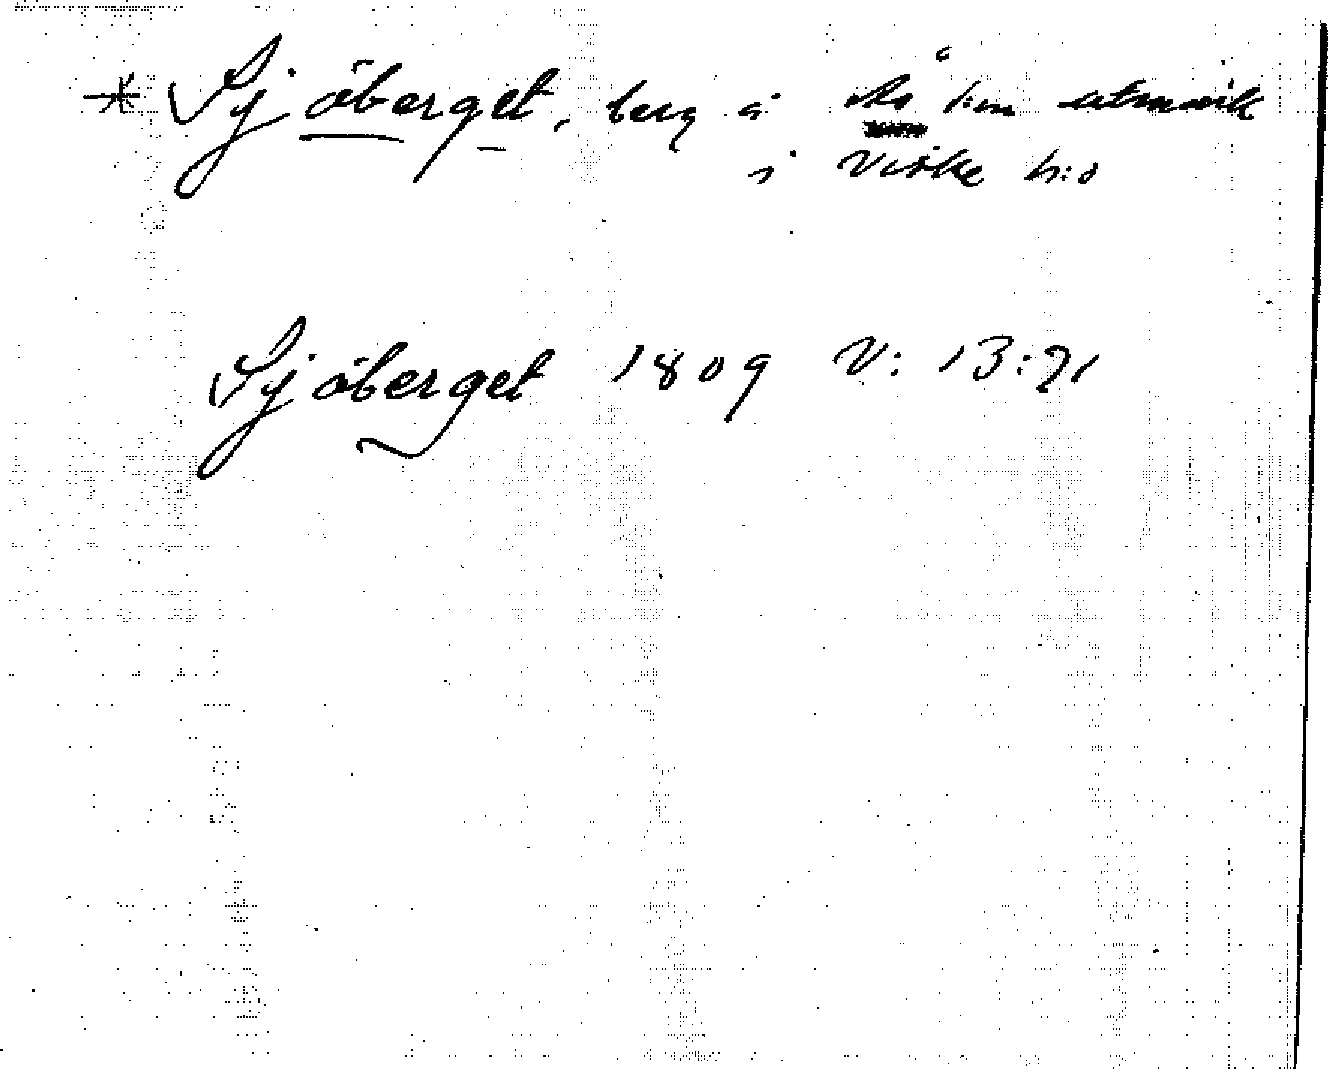 * Sjöberget, berg å sn:s utmark
i Viske h:d
Sjöberget 1809 V: 13:71